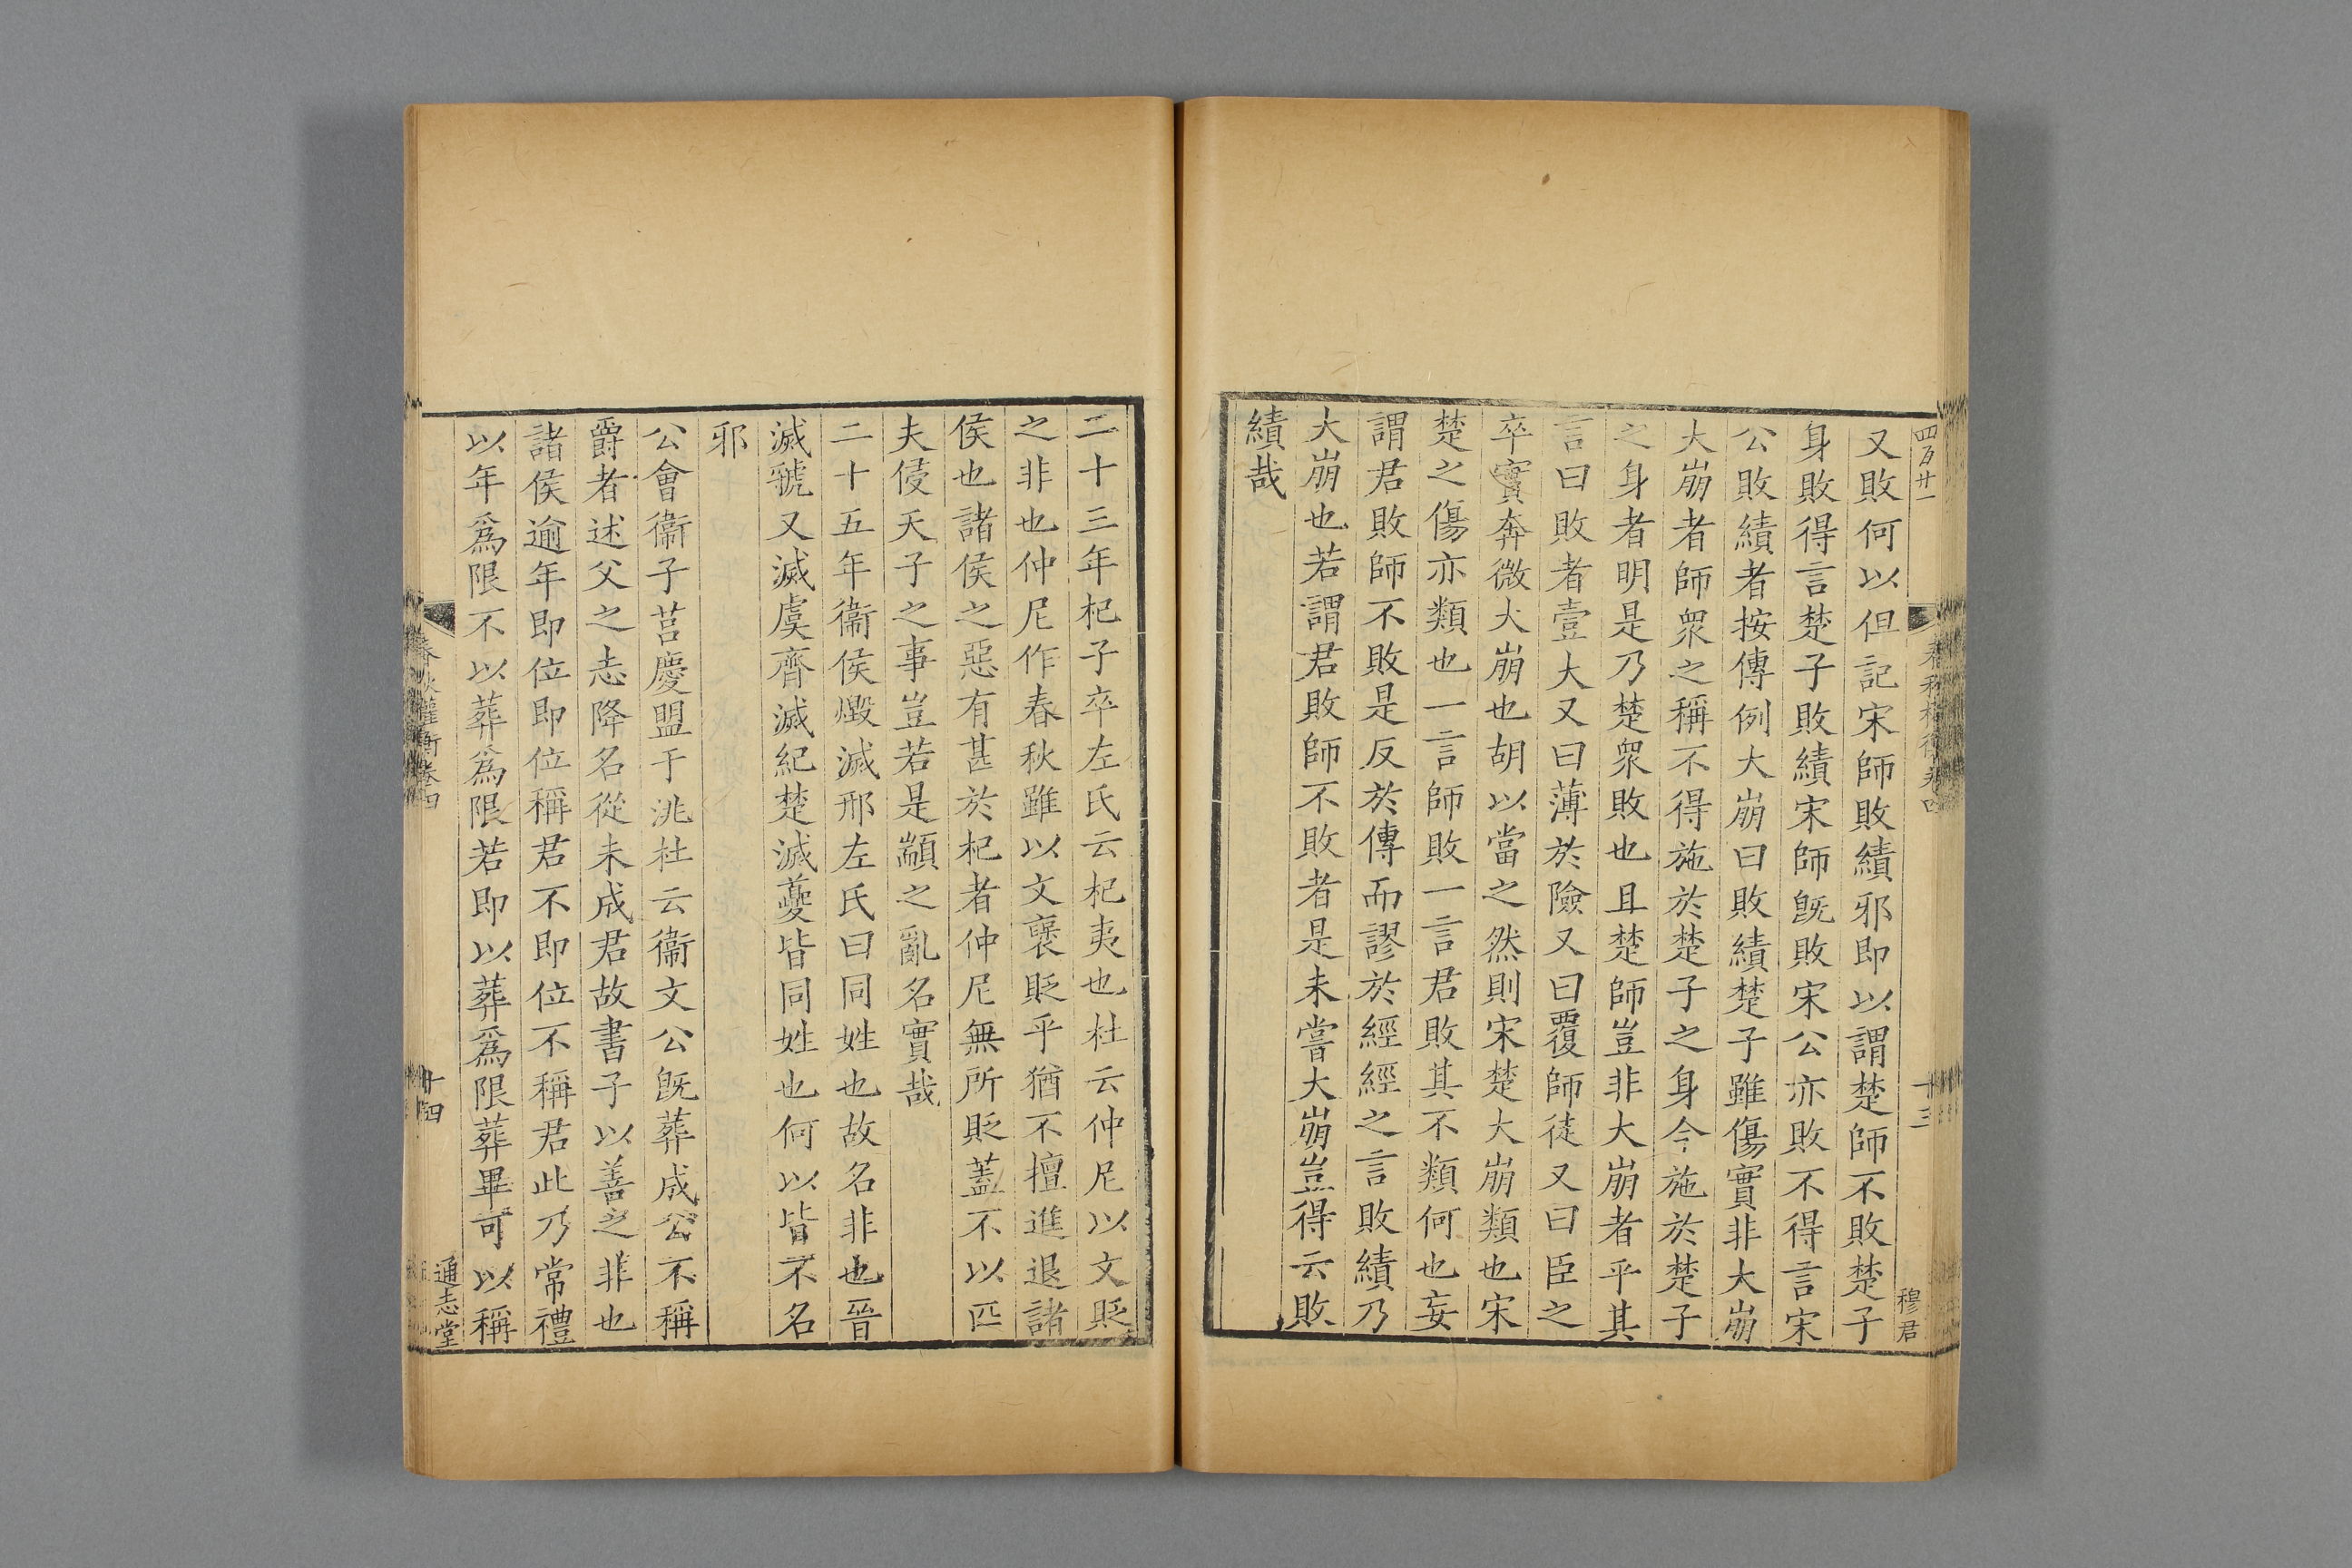 四百廿一
春秋權衡卷四
十三
穆君
又敗何以但記宋師敗績邪即以謂楚師不敗楚子
身敗得言楚子敗績宋師旣敗宋公亦敗不得言宋
公敗績者按傳例大崩曰敗績楚子雖傷實非大崩
大崩者師衆之稱不得施於楚子之身今施於楚子
之身者明是乃楚衆敗也且楚師豈非大崩者乎其
言曰敗者壹大又曰薄於險又曰覆師徒又曰臣之
卒實奔微大崩也胡以當之然則宋楚大崩類也宋
楚之傷亦類也一言師敗一言君敗其不類何也妄
謂君敗師不敗是反於傳而謬於經經之言敗績乃
大崩也若謂君敗師不敗者是未嘗大崩豈得云敗
績哉
二十三年杞子卒左氏云杞夷也杜云仲尼以文貶
之非也仲尼作春秋雖以文襃貶乎猶不擅進退諸
侯也諸侯之惡有甚於杞者仲尼無所貶蓋不以匹
夫侵天子之事豈若是顓之亂名實哉
二十五年衞侯燬滅邢左氏曰同姓也故名非也晉
滅虢又滅虞齊滅紀楚滅夔皆同姓也何以皆不名
邪
公會衞子莒慶盟于洮杜云衞文公旣葬成公不稱
爵者述父之志降名從未成君故書子以善之非也
諸侯逾年即位即位稱君不即位不稱君此乃常禮
以年爲限不以葬爲限若即以葬爲限葬畢可以稱
春秋權衡卷四
十四
通志堂